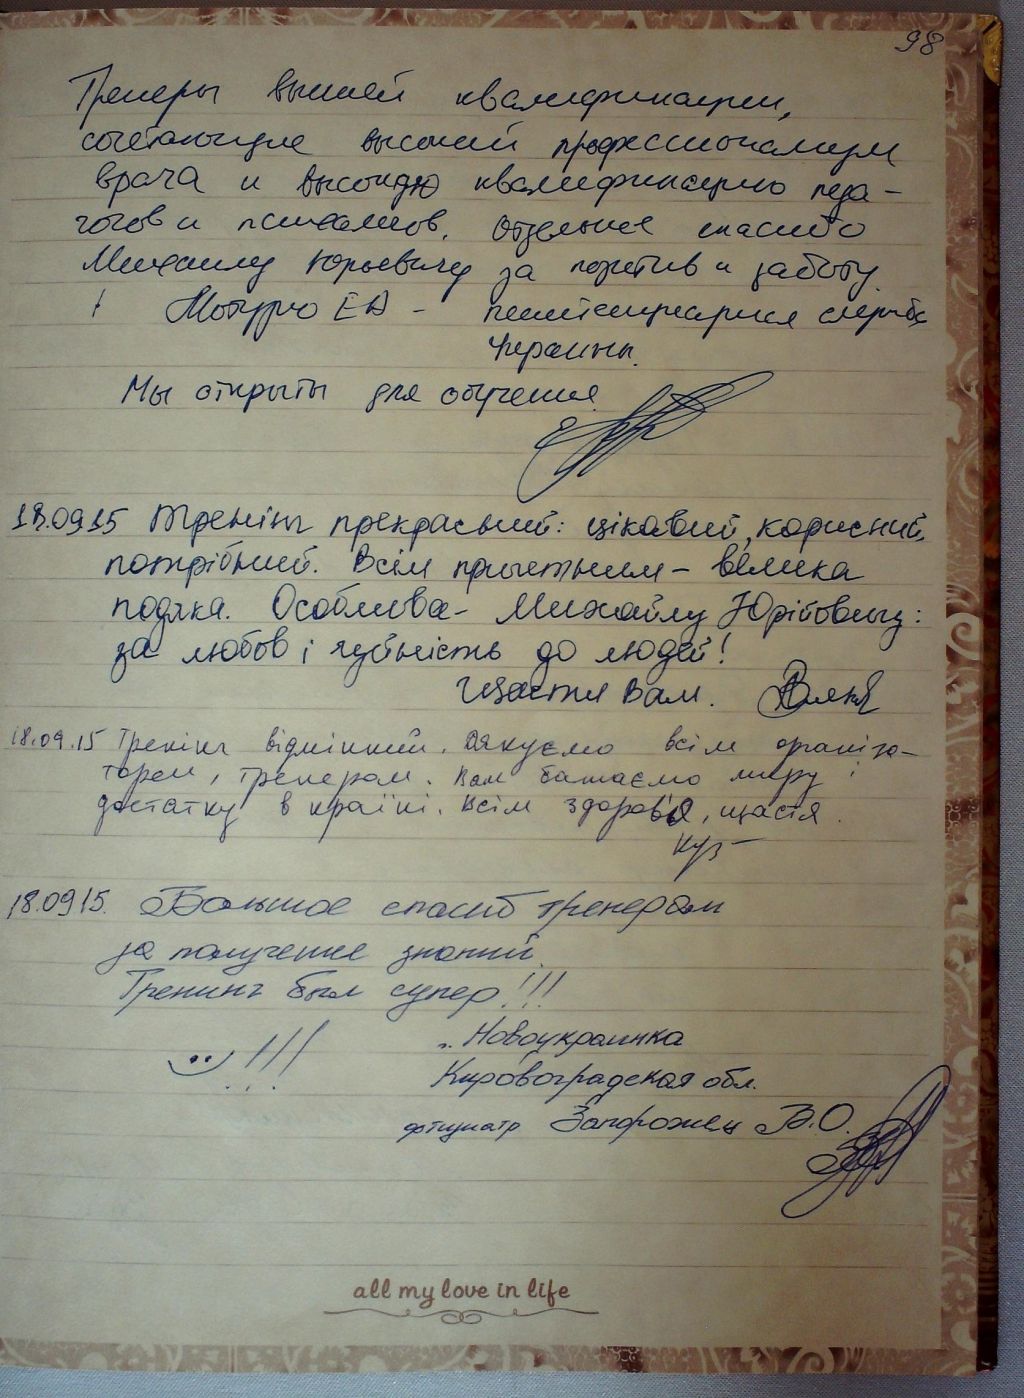 98
Тренеры высшей квалификации,
сочетающие высокий профессионализм
врача и высокую квалификацию педа-
гогов и психологов. Отдельное спасибо
Михаилу Юрьевичу за позитив и заботу.
ЕА - пенитенциарная служба
Украины.
Мы открыты для обучения
18.09.15 Тренінг прекрасний: цікавий, корисний,
потрібний. Всім причетним - велика
подяка. Особлива - Михайлу Юрійовичу:
за любов і чуйність до людей!
Щастя Вам.
18.09.15 Тренінг відмінний. Дякуємо всім організа-
торам, тренерам. Вам бажаємо миру і
достатку в країні. Всім здоров'я, щастя.
18.09.15. Большое спасиб тренерам
за получение знаний.
Тренинг был супер!!!
!!!
Новоукраинка
Кировоградская обл.
фтизиатр Запорожец В.О.
all my love in life